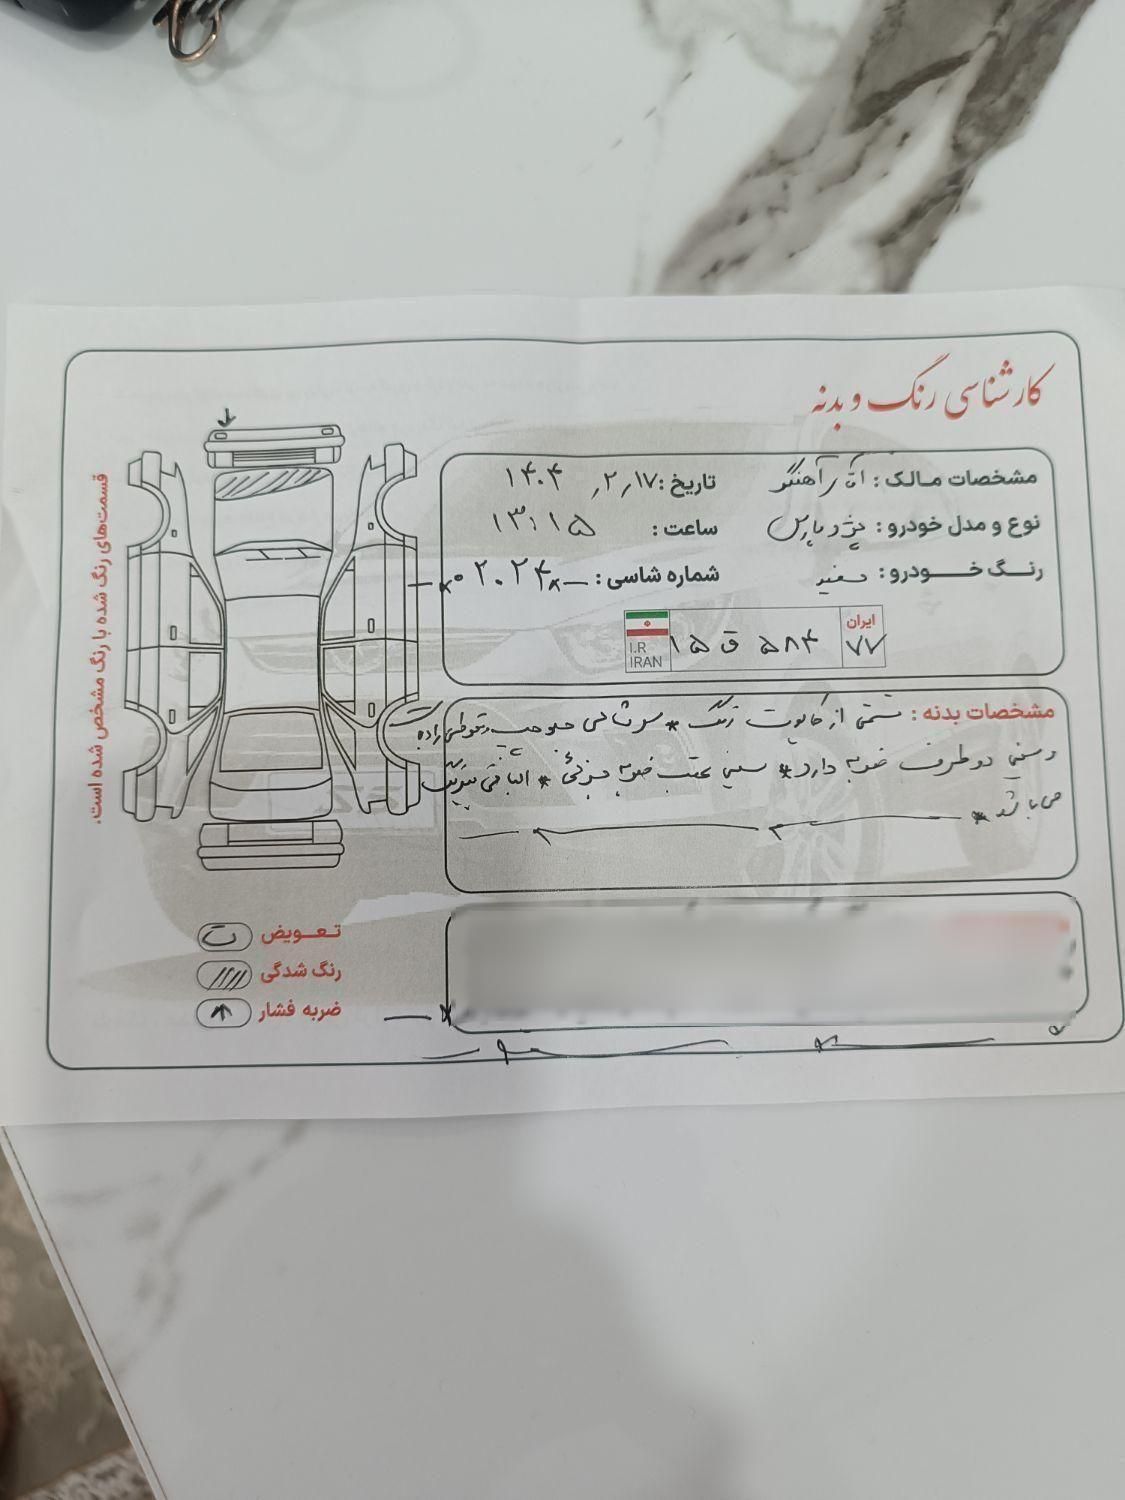 کارشناسی رنگ و بدنه
مشخصات مالک : آقا آهنگر
تاریخ : ۱۴۰۴٫۲٫۱۷
نوع و مدل خودرو : پژو پارس
ساعت : ۱۳:۱۵
رنگ خودرو : سفید
شماره شاسی :
ایران
۷۷
۵۸۴ ق ۱۵
I.R
IRAN
مشخصات بدنه : قسمتی از کاپوت رنگ * سر شاسی جلو چپ
و سینی دو طرف ضربه دارد * سینی عقب ضربه جزئی * الباقی بیرنگ
می باشد *
قسمت‌های رنگ شده با رنگ مشخص شده است.
تعویض
رنگ شدگی
ضربه فشار